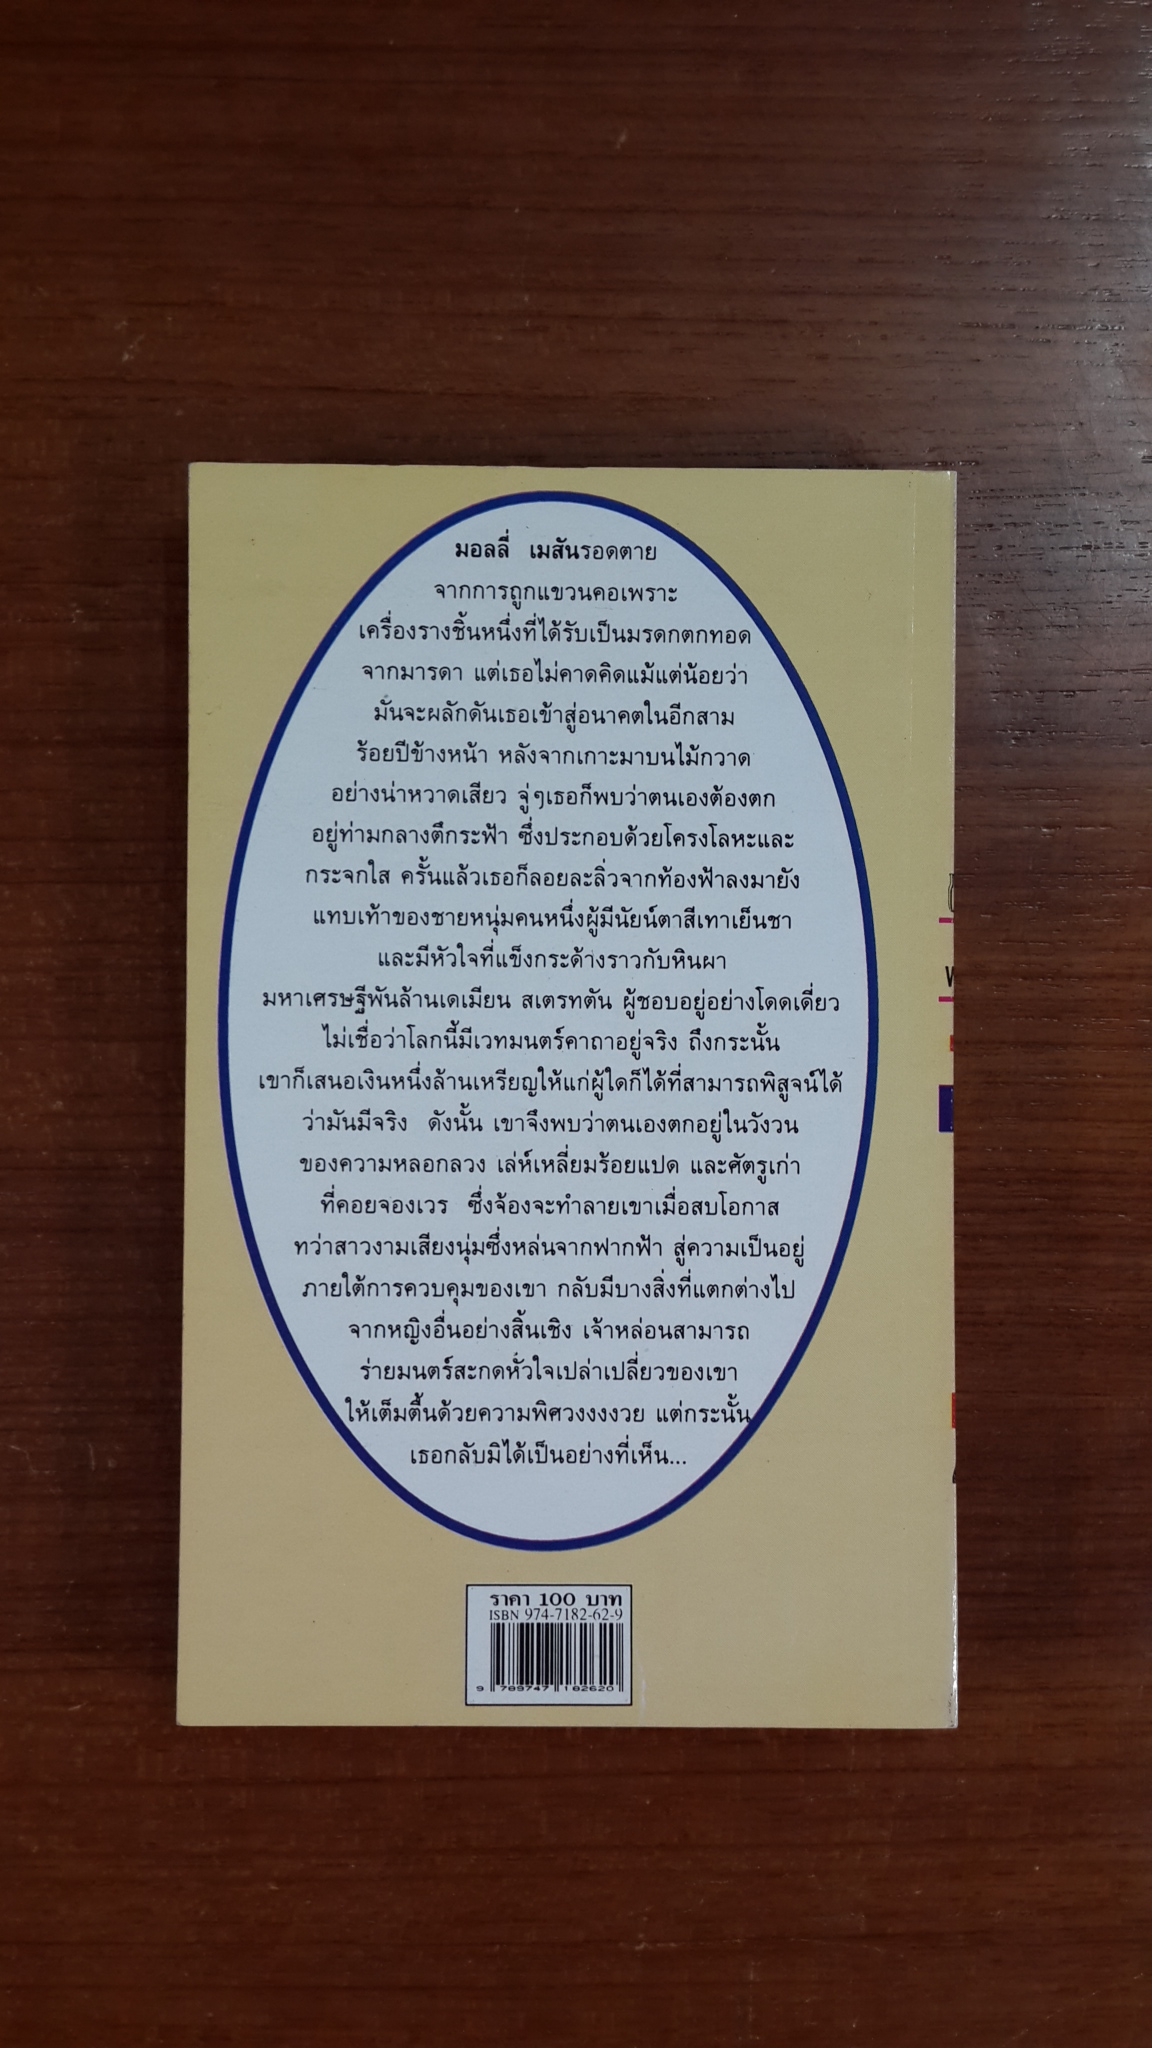 มอลลี่ เมสันรอดตาย
จากการถูกแขวนคอเพราะ
เครื่องรางชิ้นหนึ่งที่ได้รับเป็นมรดกตกทอด
จากมารดา แต่เธอไม่คาดคิดแม้แต่น้อยว่า
มันจะผลักดันเธอเข้าสู่อนาคตในอีกสาม
ร้อยปีข้างหน้า หลังจากเกาะมาบนไม้กวาด
อย่างน่าหวาดเสียว จู่ๆเธอก็พบว่าตนเองต้องตก
อยู่ท่ามกลางตึกระฟ้า ซึ่งประกอบด้วยโครงโลหะและ
กระจกใส ครั้นแล้วเธอก็ลอยละลิ่วจากท้องฟ้าลงมายัง
แทบเท้าของชายหนุ่มคนหนึ่งผู้มีนัยน์ตาสีเทาเย็นชา
และมีหัวใจที่แข็งกระด้างราวกับหินผา
มหาเศรษฐีพันล้านเดเมียน สเตรทตัน ผู้ชอบอยู่อย่างโดดเดี่ยว
ไม่เชื่อว่าโลกนี้มีเวทมนตร์คาถาอยู่จริง ถึงกระนั้น
เขาก็เสนอเงินหนึ่งล้านเหรียญให้แก่ผู้ใดก็ได้ที่สามารถพิสูจน์ได้
ว่ามันมีจริง ดังนั้น เขาจึงพบว่าตนเองตกอยู่ในวังวน
ของความหลอกลวง เล่ห์เหลี่ยมร้อยแปด และศัตรูเก่า
ที่คอยจองเวร ซึ่งจ้องจะทำลายเขาเมื่อสบโอกาส
ทว่าสาวงามเสียงนุ่มซึ่งหล่นจากฟากฟ้า สู่ความเป็นอยู่
ภายใต้การควบคุมของเขา กลับมีบางสิ่งที่แตกต่างไป
จากหญิงอื่นอย่างสิ้นเชิง เจ้าหล่อนสามารถ
ร่ายมนตร์สะกดหัวใจเปล่าเปลี่ยวของเขา
ให้เต็มตื้นด้วยความพิศวงงงงวย แต่กระนั้น
เธอกลับมิได้เป็นอย่างที่เห็น...
ราคา 100 บาท
ISBN 974-7182-62-9
9 789747 182620